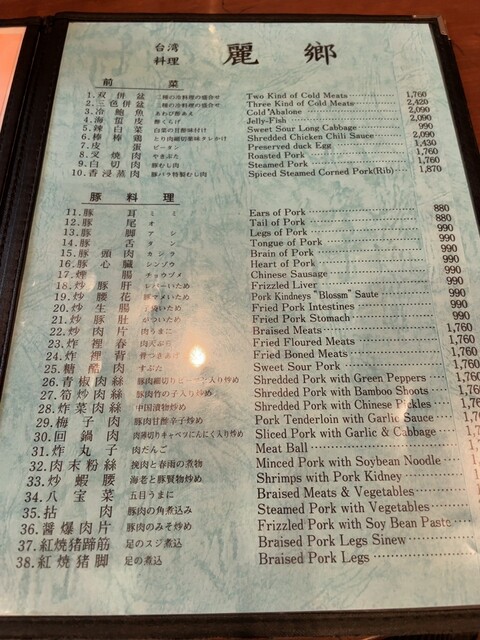 台湾料理 麗郷
前菜
1. 双併盆 二種の冷料理の盛合せ Two Kind of Cold Meats 1,760
2. 三色併盆 三種の冷料理の盛合せ Three Kind of Cold Meats 2,420
3. 冷鮑魚 あわび酢あえ Cold Abalone 2,090
4. 海蜇皮 酢くらげ Jelly-Fish 2,090
5. 辣白菜 白菜の甘酢味付け Sweet Sour Long Cabbage 990
6. 棒棒鶏 とり肉細切薬味タレかけ Shredded Chicken Chili Sauce 2,090
7. 皮蛋 ピータン Preserved duck Egg 1,430
8. 叉焼肉 やきぶた Roasted Pork 1,760
9. 白切肉 豚むし肉 Steamed Pork 1,760
10. 香浸蒸肉 豚バラ特製むし肉 Spiced Steamed Corned Pork(Rib) 1,870
豚料理
11. 豚耳 ミミ Ears of Pork 880
12. 豚尾 オ Tail of Pork 880
13. 豚脚 アシ Legs of Pork 990
14. 豚舌 タン Tongue of Pork 990
15. 豚頭肉 カシラ Brain of Pork 990
16. 豚心臓 シンゾウ Heart of Pork 990
17. 煙腸 チョウヅメ Chinese Sausage 990
18. 炒豚肝 レバーいため Frizzled Liver 990
19. 炒腰花 豚マメいため Pork Kindneys "Blossm" Saute 990
20. 炒生腸 子袋いため Fried Pork Intestines 990
21. 炒豚肚 がついため Fried Pork Stomach 990
22. 炒肉片 肉うまに Braised Meats 1,760
23. 炸裡春 肉天ぷら Fried Floured Meats 1,760
24. 炸裡背 骨つきあげ Fried Boned Meats 1,760
25. 糖酷肉 すぶた Sweet Sour Pork 1,760
26. 青椒肉絲 豚肉細切りピーマン入り炒め Shredded Pork with Green Peppers
27. 筍炒肉絲 豚肉竹の子入り炒め Shredded Pork with Bamboo Shoots 1,760
28. 炸菜肉絲 中国漬物炒め Shredded Pork with Chinese Pickles
29. 梅子肉 豚肉甘酸辛子炒め Pork Tenderloin with Garlic Sauce 1,760
30. 回鍋肉 肉薄切りキャベツにんにく入り炒め Sliced Pork with Garlic & Cabbage 1,760
31. 炸丸子 肉だんご Meat Ball 1,760
32. 肉末粉絲 挽肉と春雨の煮物 Minced Pork with Soybean Noodle 1,760
33. 炒蝦腰 海老と豚腎物炒め Shrimps with Pork Kidney
34. 八宝菜 五目うまに Braised Meats & Vegetables
35. 拈肉 豚肉の角煮込み Steamed Pork with Vegetables
36. 醤爆肉片 豚肉のみそ炒め Frizzled Pork with Soy Bean Paste
37. 紅焼猪蹄筋 足のスジ煮込 Braised Pork Legs Sinew
38. 紅焼猪脚 足の煮込 Braised Pork Legs